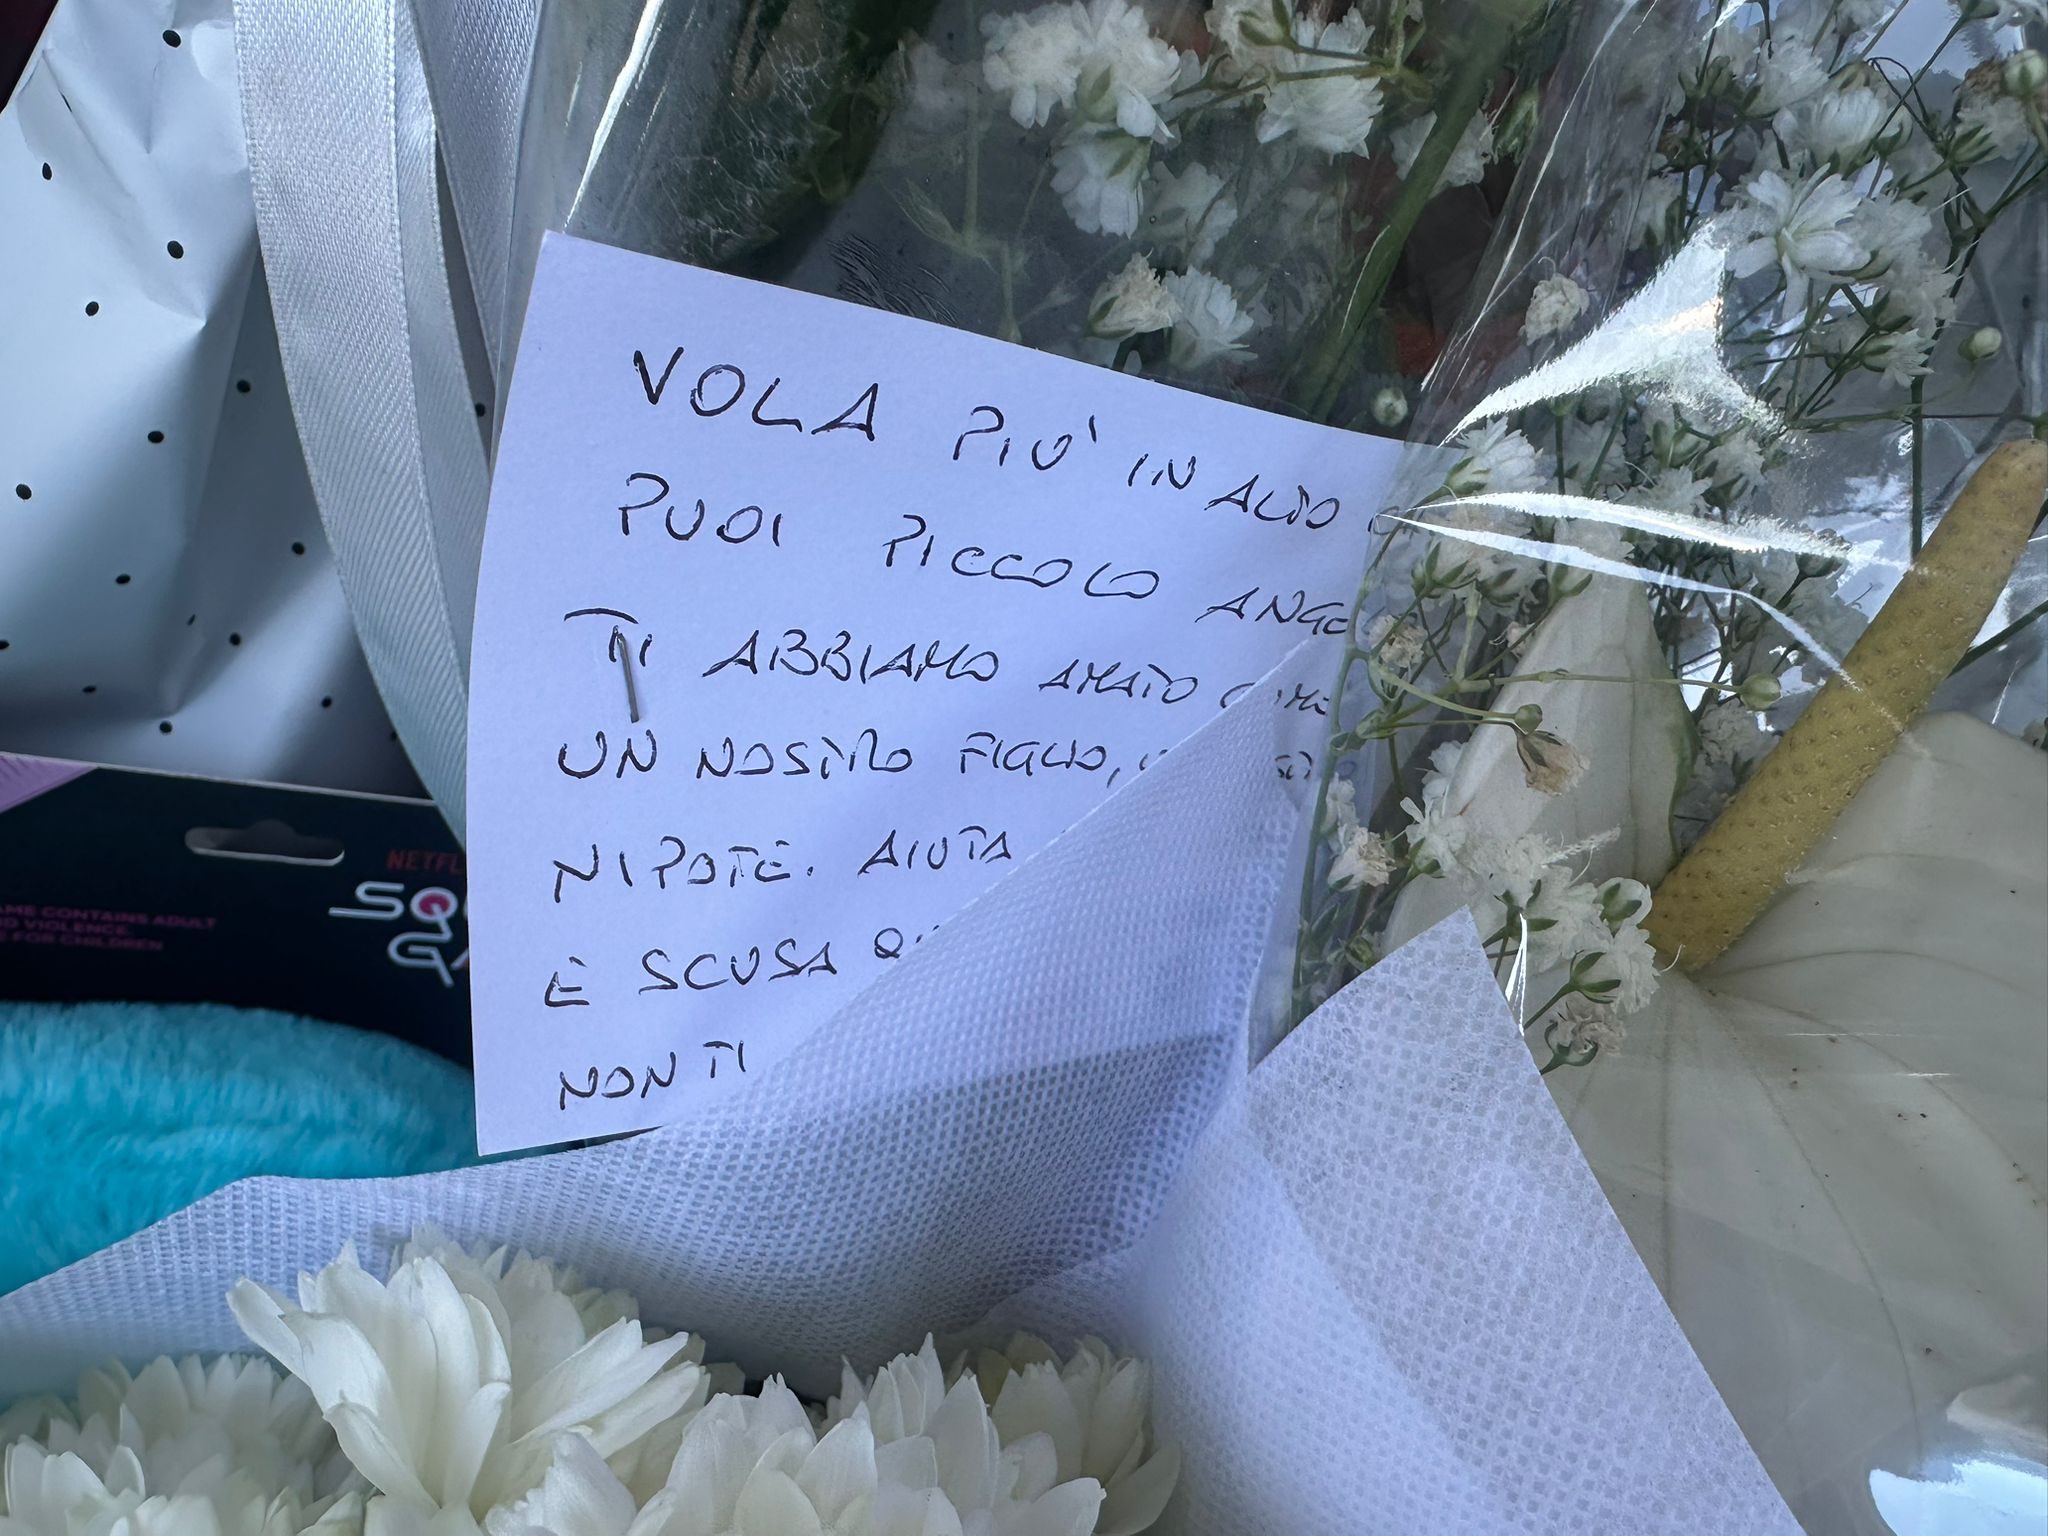 VOLA PIU' IN ALTO
PUOI PICCOLO ANGE
TI ABBIAMO AMATO COME
UN NOSTRO FIGLIO,
NIPOTE. AIUTA
E SCUSA
NON TI
NETFL
SQ
GA
AME CONTAINS ADULT
D VIOLENCE.
FOR CHILDREN